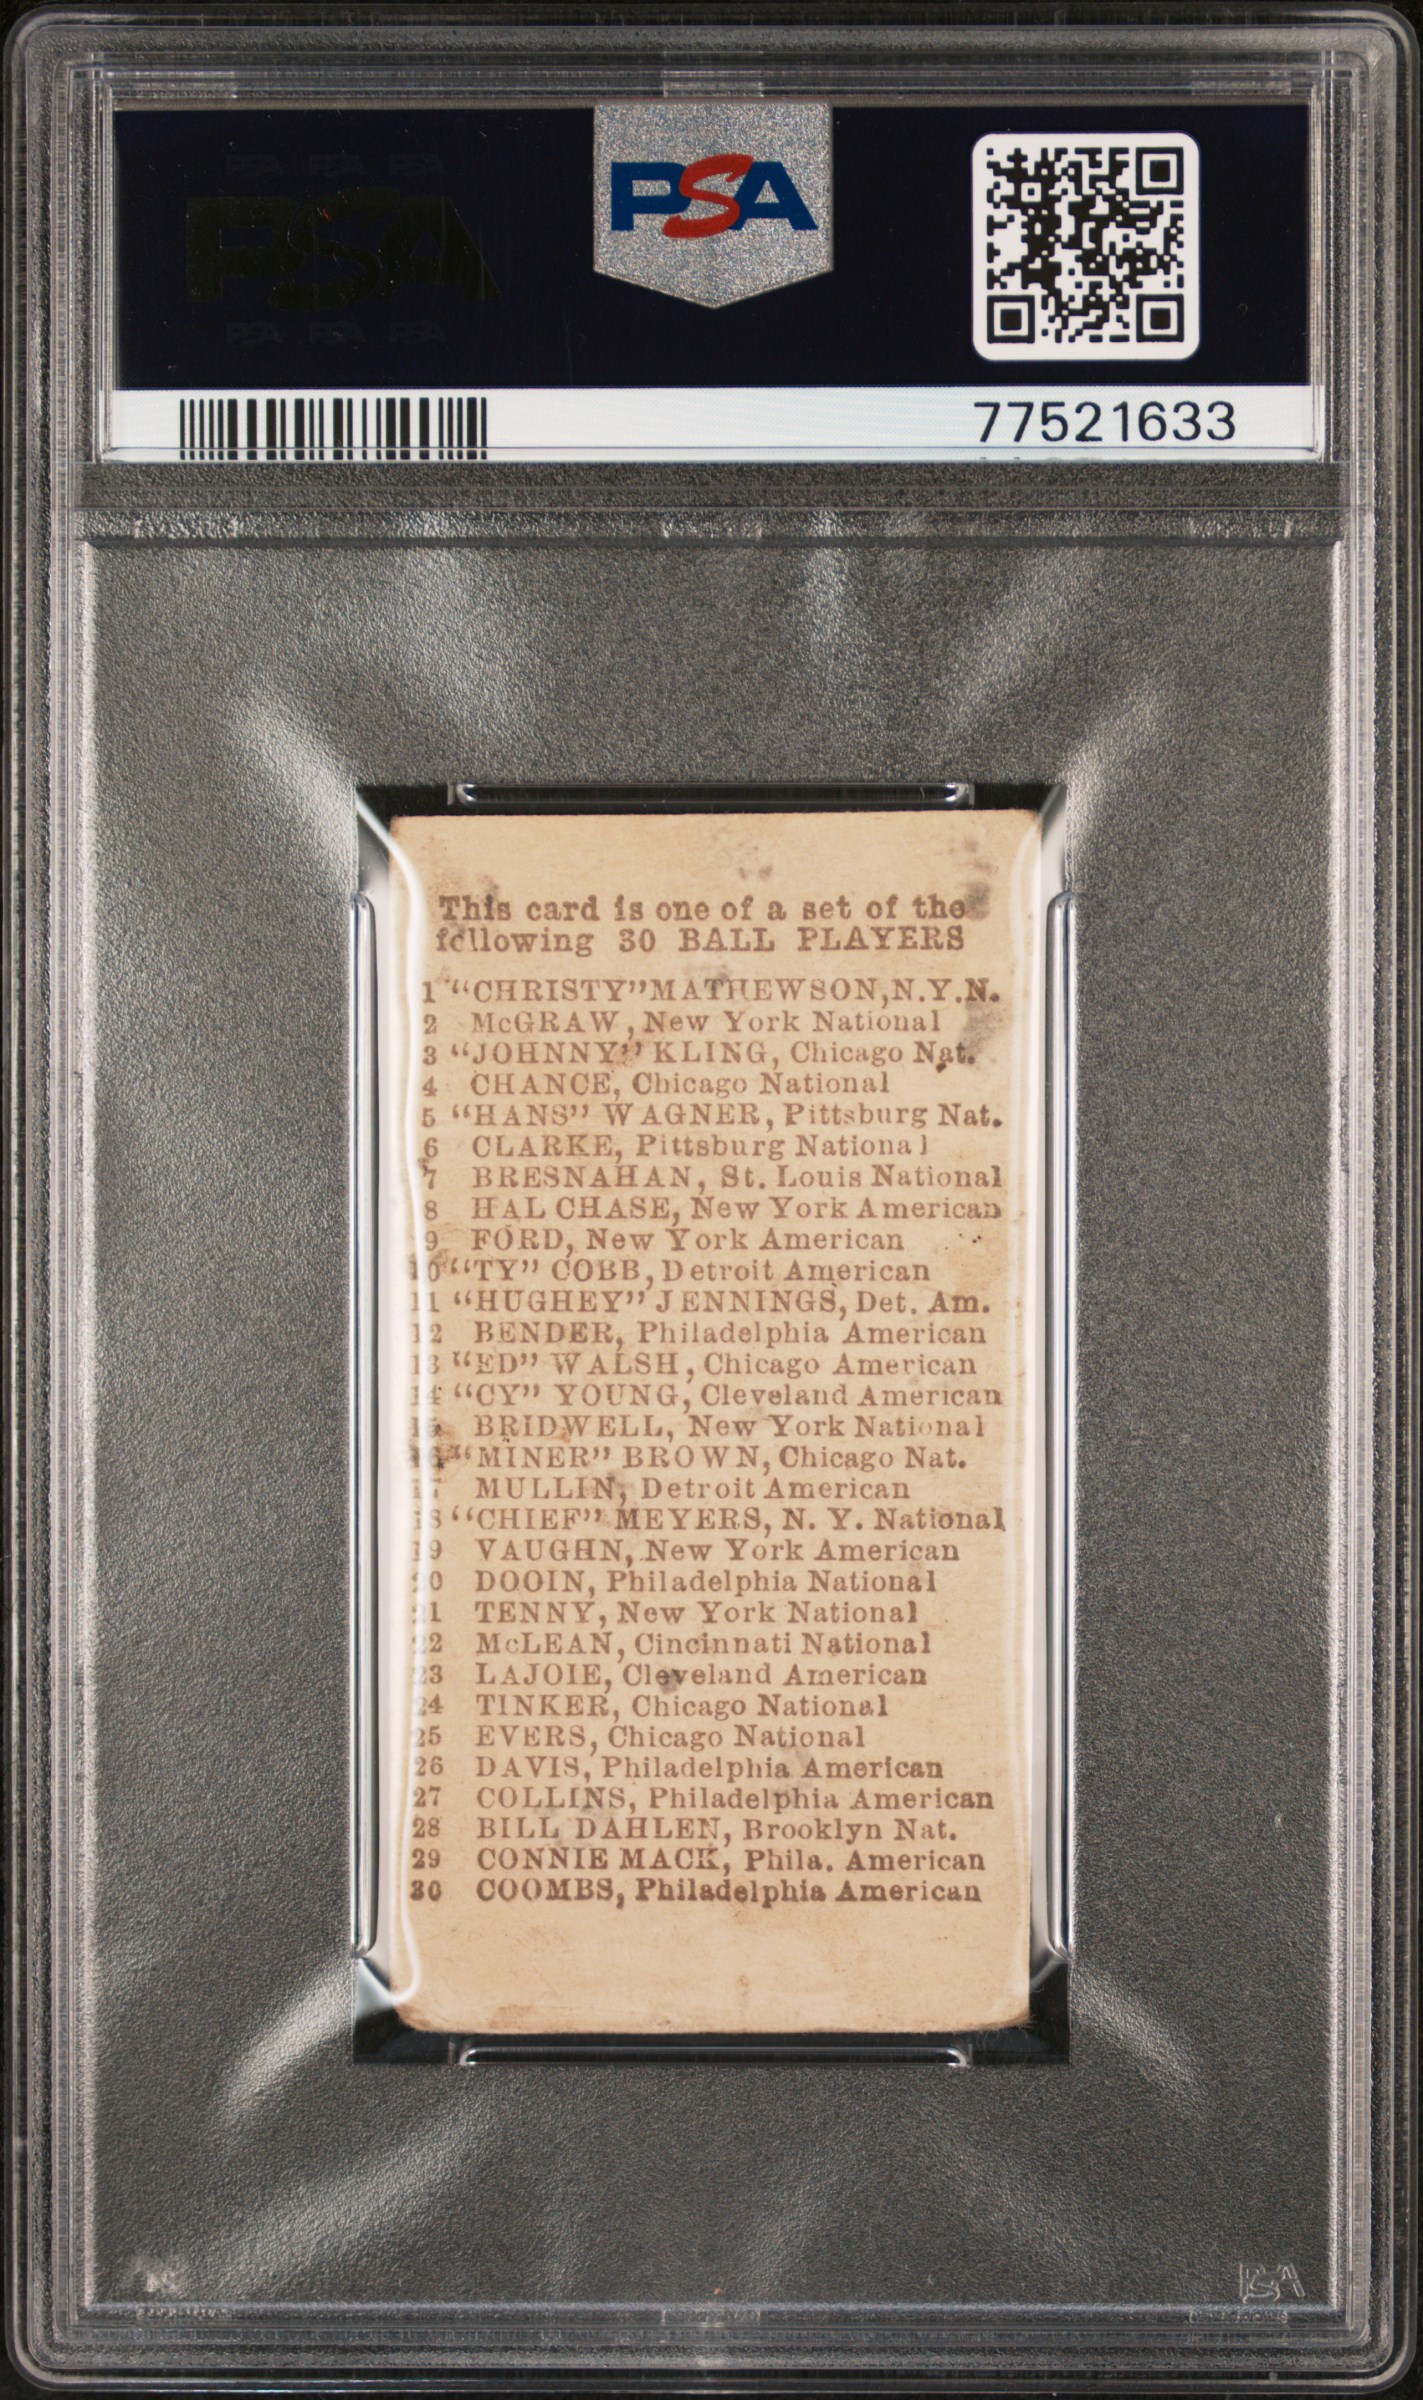 PSA
77521633
This card is one of a set of the
following 30 BALL PLAYERS
1 "CHRISTY" MATHEWSON, N.Y.N.
2 McGRAW, New York National
3 "JOHNNY" KLING, Chicago Nat.
4 CHANCE, Chicago National
5 "HANS" WAGNER, Pittsburg Nat.
6 CLARKE, Pittsburg National
7 BRESNAHAN, St. Louis National
8 HAL CHASE, New York American
9 FORD, New York American
10 "TY" COBB, Detroit American
11 "HUGHEY" JENNINGS, Det. Am.
12 BENDER, Philadelphia American
13 "ED" WALSH, Chicago American
14 "CY" YOUNG, Cleveland American
15 BRIDWELL, New York National
16 "MINER" BROWN, Chicago Nat.
17 MULLIN, Detroit American
18 "CHIEF" MEYERS, N. Y. National
19 VAUGHN, New York American
20 DOOIN, Philadelphia National
21 TENNY, New York National
22 McLEAN, Cincinnati National
23 LAJOIE, Cleveland American
24 TINKER, Chicago National
25 EVERS, Chicago National
26 DAVIS, Philadelphia American
27 COLLINS, Philadelphia American
28 BILL DAHLEN, Brooklyn Nat.
29 CONNIE MACK, Phila. American
30 COOMBS, Philadelphia American
PSA